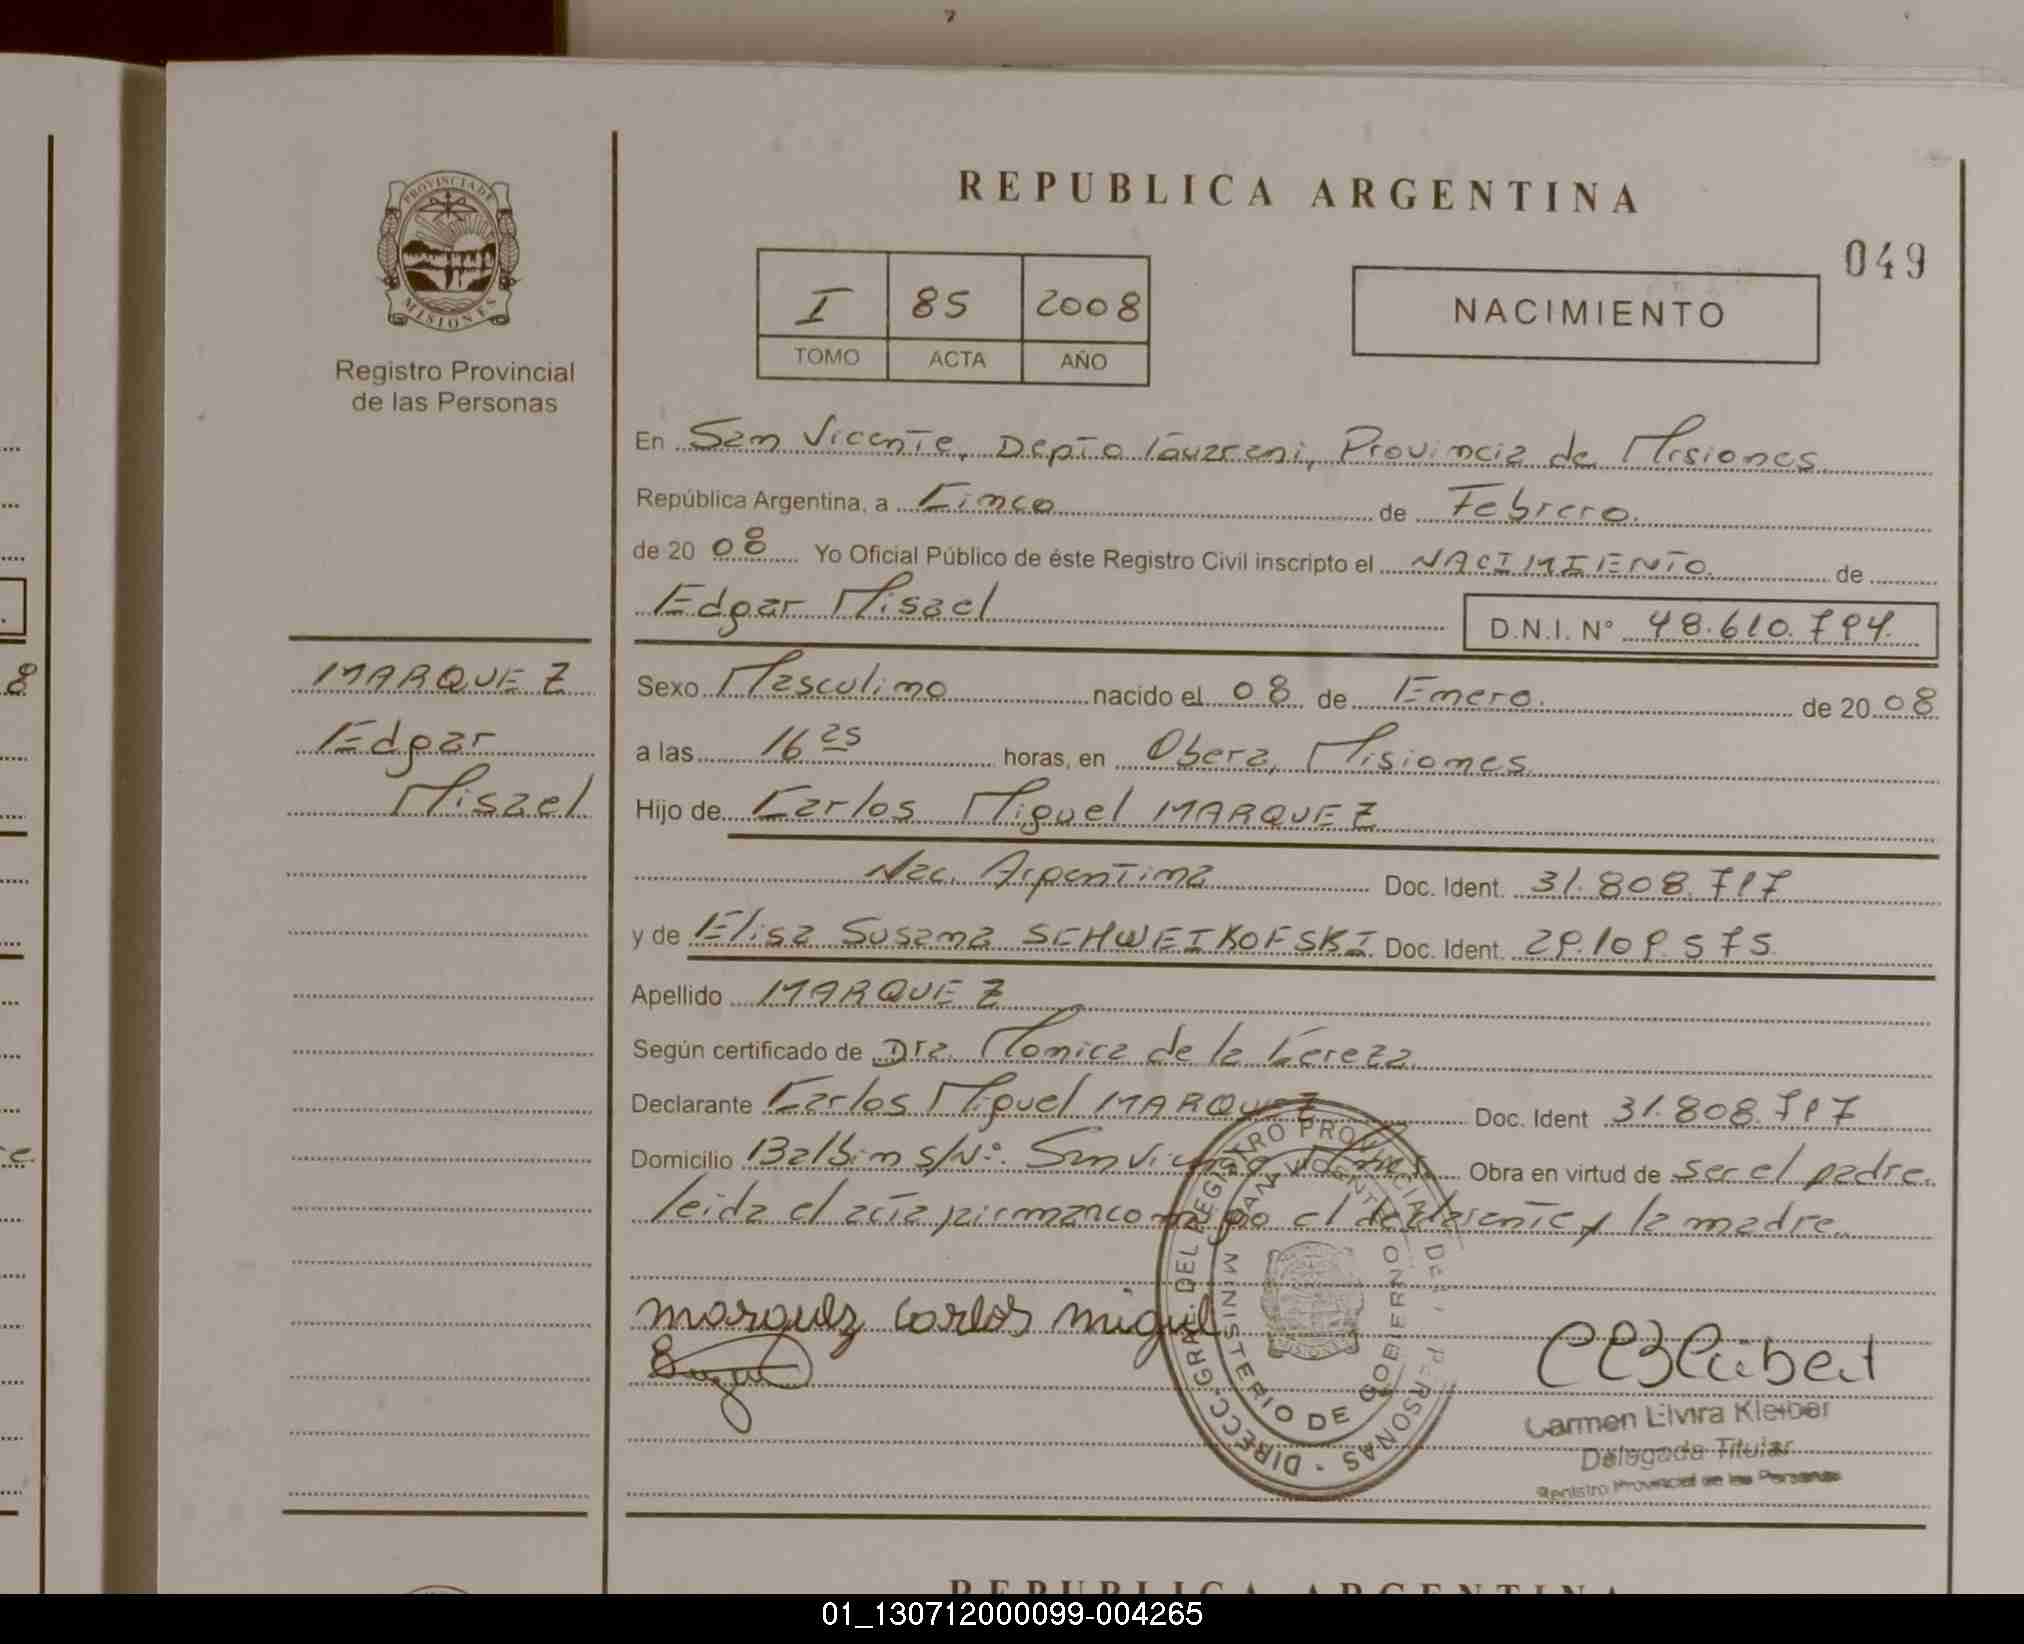 REPUBLICA ARGENTINA
049
PROVINCIA DE
MISIONES
Registro Provincial
de las Personas
I 85 2008
TOMO ACTA AÑO
NACIMIENTO
En San Vicente, Depto Guarani, Provincia de Misiones
República Argentina, a Cinco de Febrero.
de 20 08 Yo Oficial Público de éste Registro Civil inscripto el NACIMIENTO de
Edgar Misael D.N.I. Nº 48.610.794.
MARQUEZ
Edgar
Misael
Sexo Masculino nacido el 08 de Enero. de 20 08
a las 16 25 horas, en Obera, Misiones
Hijo de Carlos Miguel MARQUEZ
Nac. Argentina Doc. Ident. 31.808.717
y de Elisa Susana SCHWEIKOFSKI Doc. Ident. 29.109.575
Apellido MARQUEZ
Según certificado de Dra. Monica de la
Declarante Carlos Miguel MARQUEZ Doc. Ident 31.808.717
Domicilio Balbin S/Nº. San Vicente Obra en virtud de ser el padre.
leida el acta firman conmigo el declarante y la madre.
marquez carlos miguel
DIRECC. GRAL. DEL REGISTRO PROVINCIAL DE PERSONAS
MINISTERIO DE GOBIERNO
SAN VICENTE
MISIONES
Carmen Elvira Kleiber
Delegada Titular
Registro Provincial de las Personas
REPUBLICA ARGENTINA
01_130712000099-004265